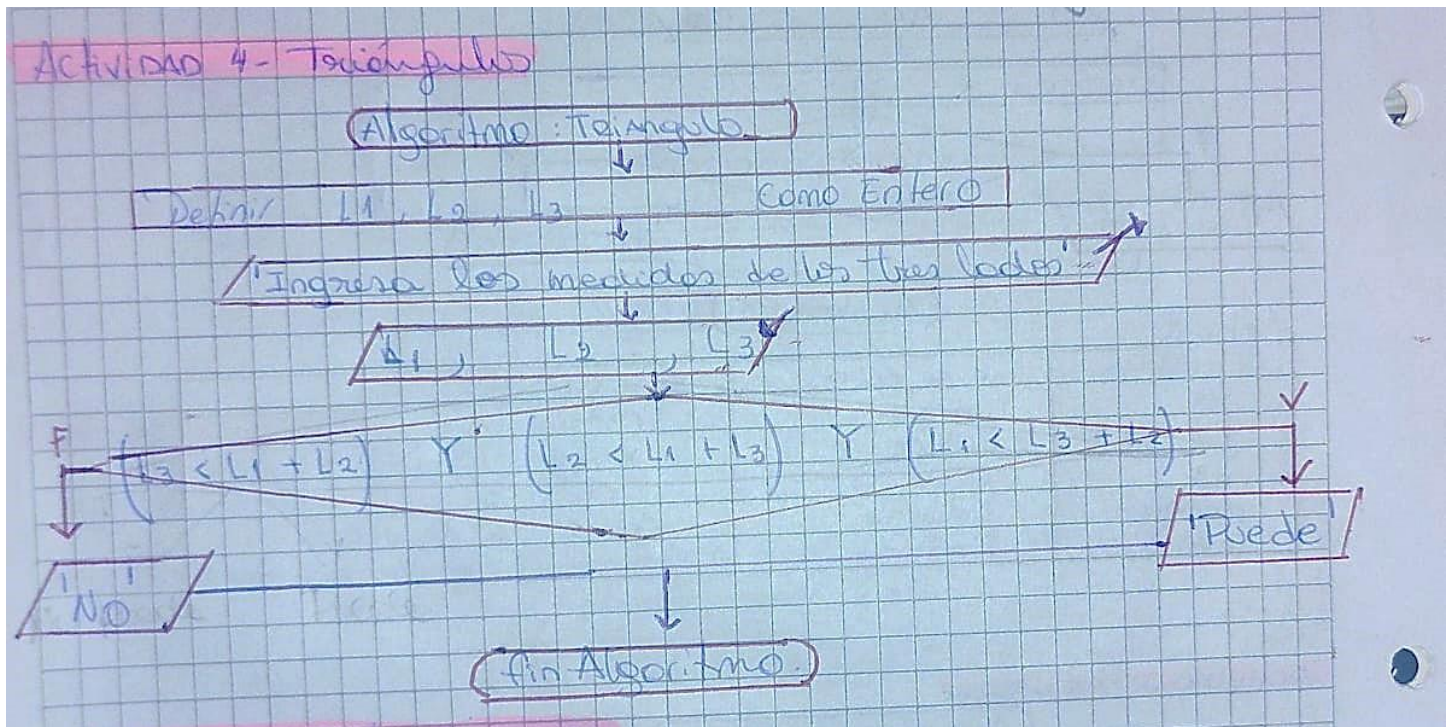 Actividad 4- Triángulos
Algoritmo: Triangulo
Definir L1, L2, L3 Como Entero
'Ingresa las medidas de los tres lados'
L1, L2, L3
F (L3 < L1 + L2) Y (L2 < L1 + L3) Y (L1 < L3 + L2) V
'Puede'
'NO'
fin Algoritmo.